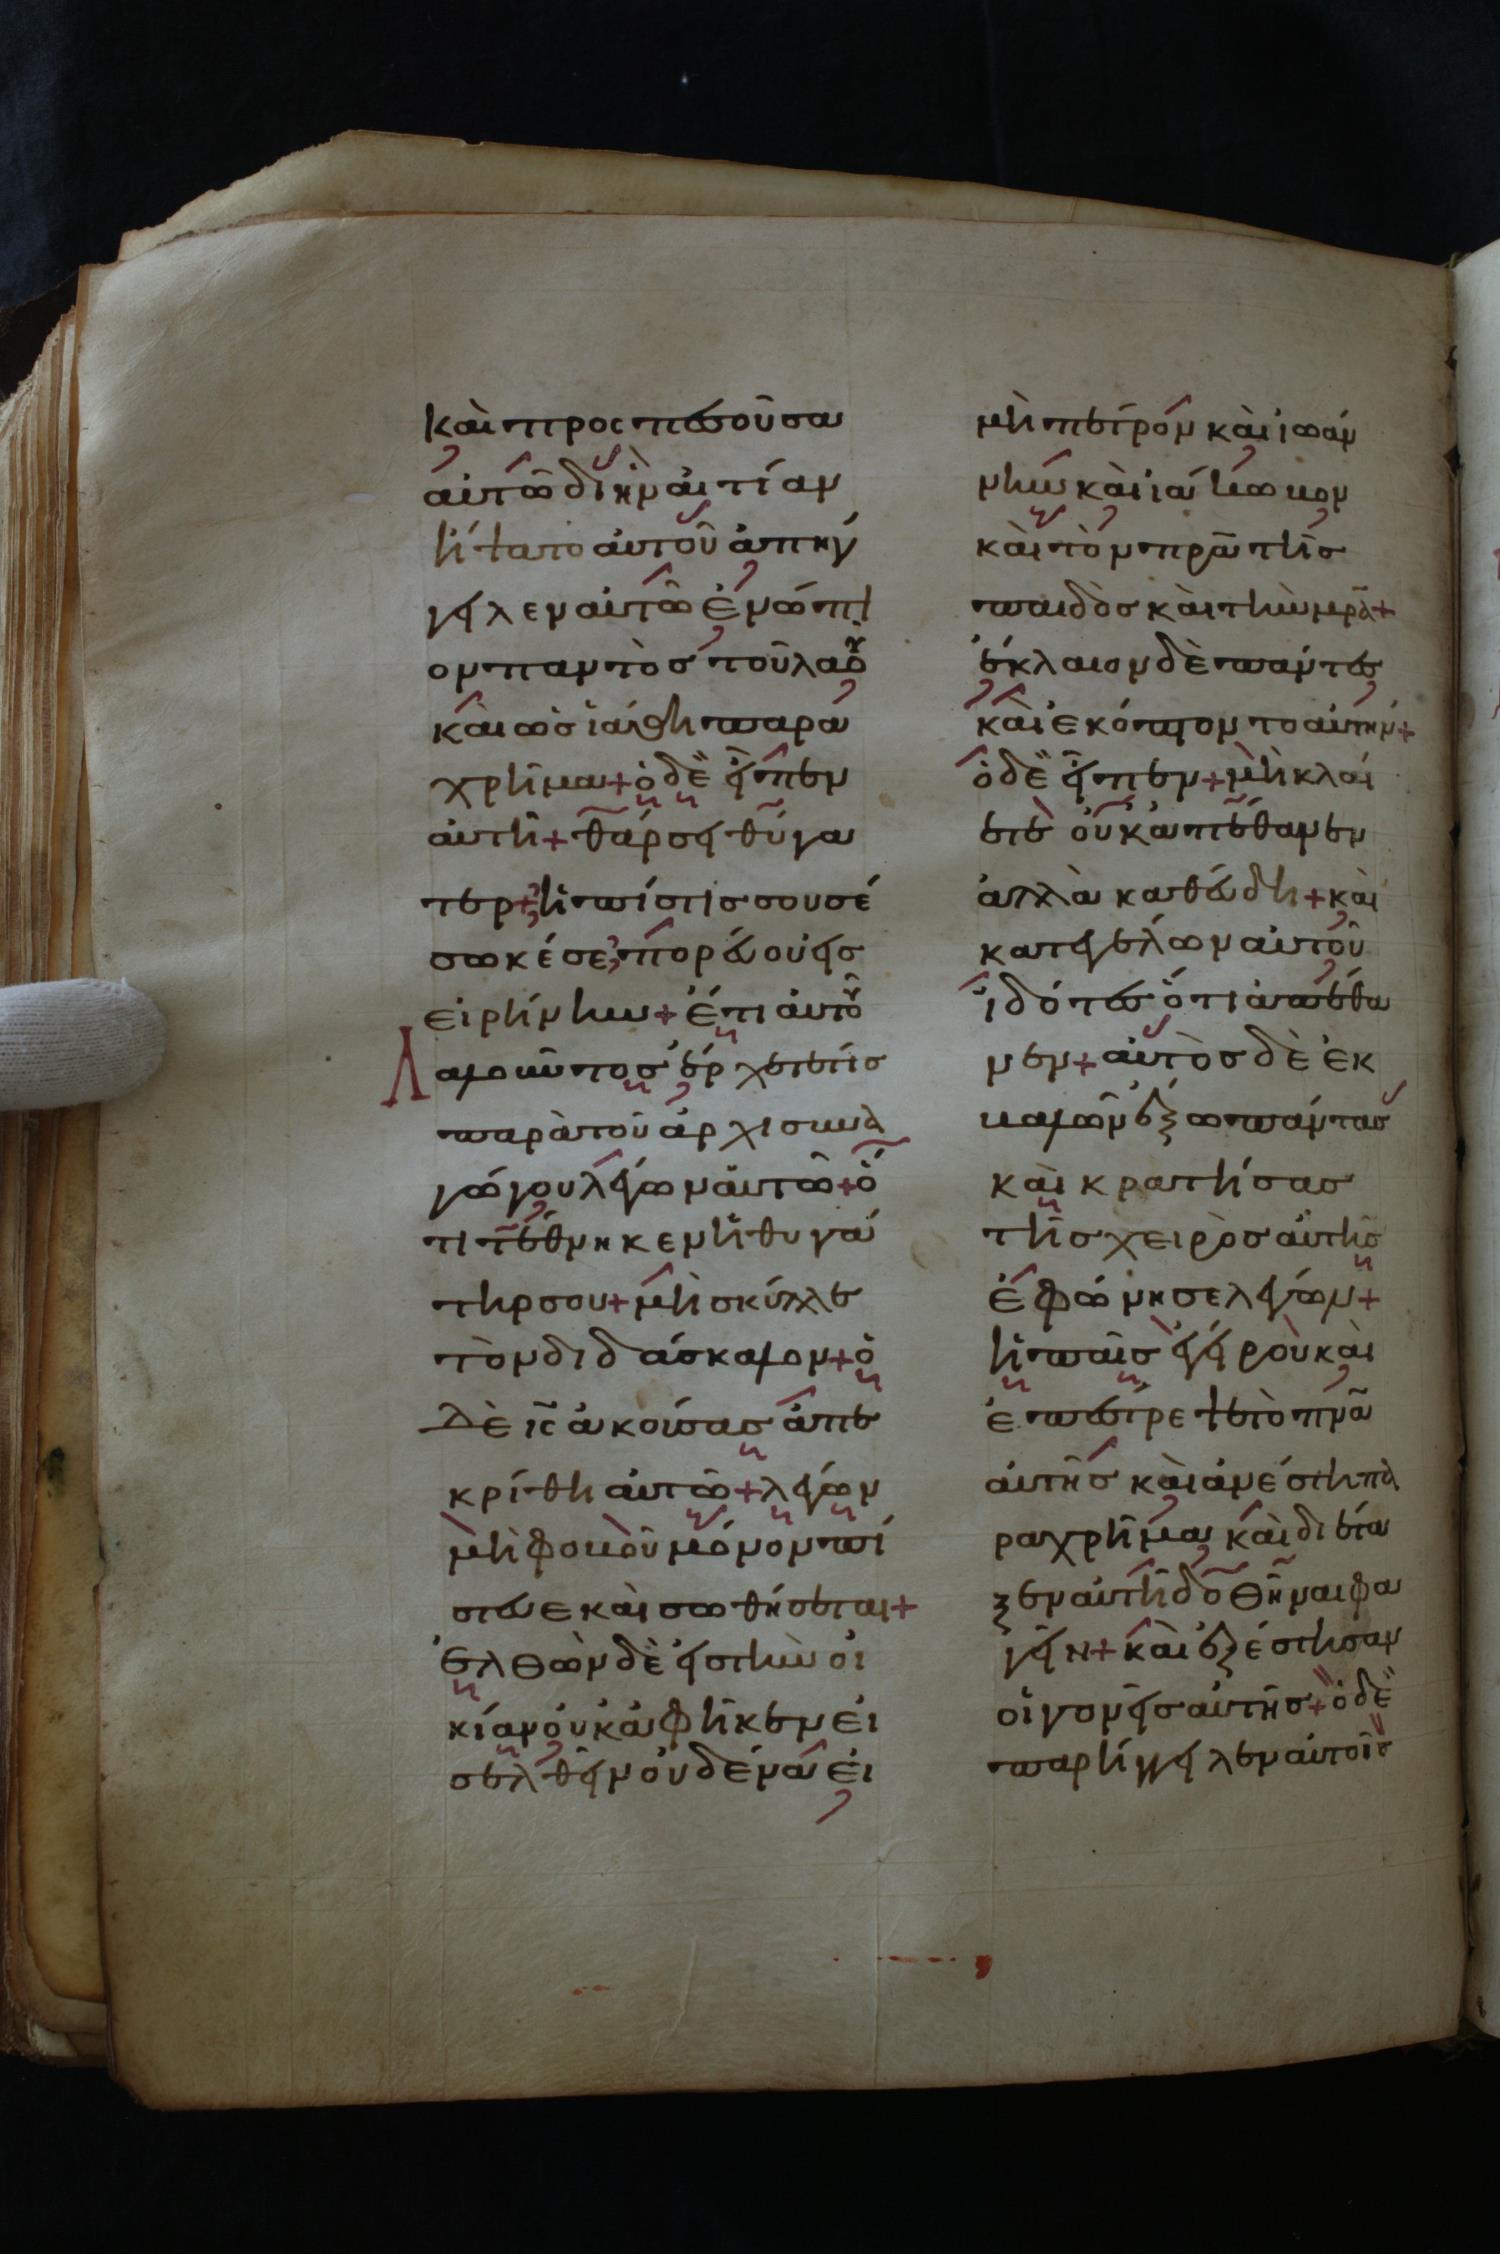 καὶ προσπεσοῦσα
αὐτῶ δι ἣν αἰτίαν
ἥψατο αὐτοῦ ἀπήγ
γειλεν αὐτῶ ἐνώπι
ον παντὸς τοῦ λαοῦ
καὶ ὡς ἰάθη παρα
χρῆμα + ὁ δὲ εἶπεν
αὐτῆ + θάρσει θύγα
τερ + ἡ πίστις σου σέ
σωκέ σε, πορεύου εἰς
εἰρήνην + Ἔτι αὐτοῦ
Λαλοῦντος ἔρχεταί τις
παρὰ τοῦ ἀρχισυνα
γώγου λέγων αὐτῶ + ὅ
τι τέθνηκεν ἡ θυγά
τηρ σου + μὴ σκύλλε
τὸν διδάσκαλον + ὁ
δὲ ις ἀκούσας ἀπε
κρίθη αὐτῶ + λέγων
μὴ φοβοῦ μόνον πί
στευε καὶ σωθήσεται +
ἐλθὼν δὲ εἰς τὴν οἰ
κίαν οὐκ ἀφῆκεν εἰ
σελθεῖν οὐδένα εἰ
μὴ πέτρον καὶ ἰωάν
νην καὶ ἰάκωβον
καὶ τὸν πρα τῆς
παιδὸς καὶ τὴν μρα +
ἔκλαιον δὲ πάντες
καὶ ἐκόπτοντο αὐτήν +
ὁ δὲ εἶπεν + μὴ κλαί
ετε οὐκ ἀπέθανεν
ἀλλὰ καθεύδει + καὶ
κατεγέλων αὐτοῦ
εἰδότες ὅτι ἀπέθα
νεν + αὐτὸς δὲ ἐκ
βαλὼν ἔξω πάντας
καὶ κρατήσας
τῆς χειρὸς αὐτῆς
ἐφώνησε λέγων +
ἡ παῖς ἐγείρου καὶ
ἐπέστρεψε τὸ πνα
αὐτῆς καὶ ἀνέστη πα
ραχρῆμα καὶ διέτα
ξεν αὐτῆ δοθῆναι φα
γεῖν + καὶ ἐξέστησαν
οἱ γονεῖς αὐτῆς + ὁ δὲ
παρήγγειλεν αὐτοῖς